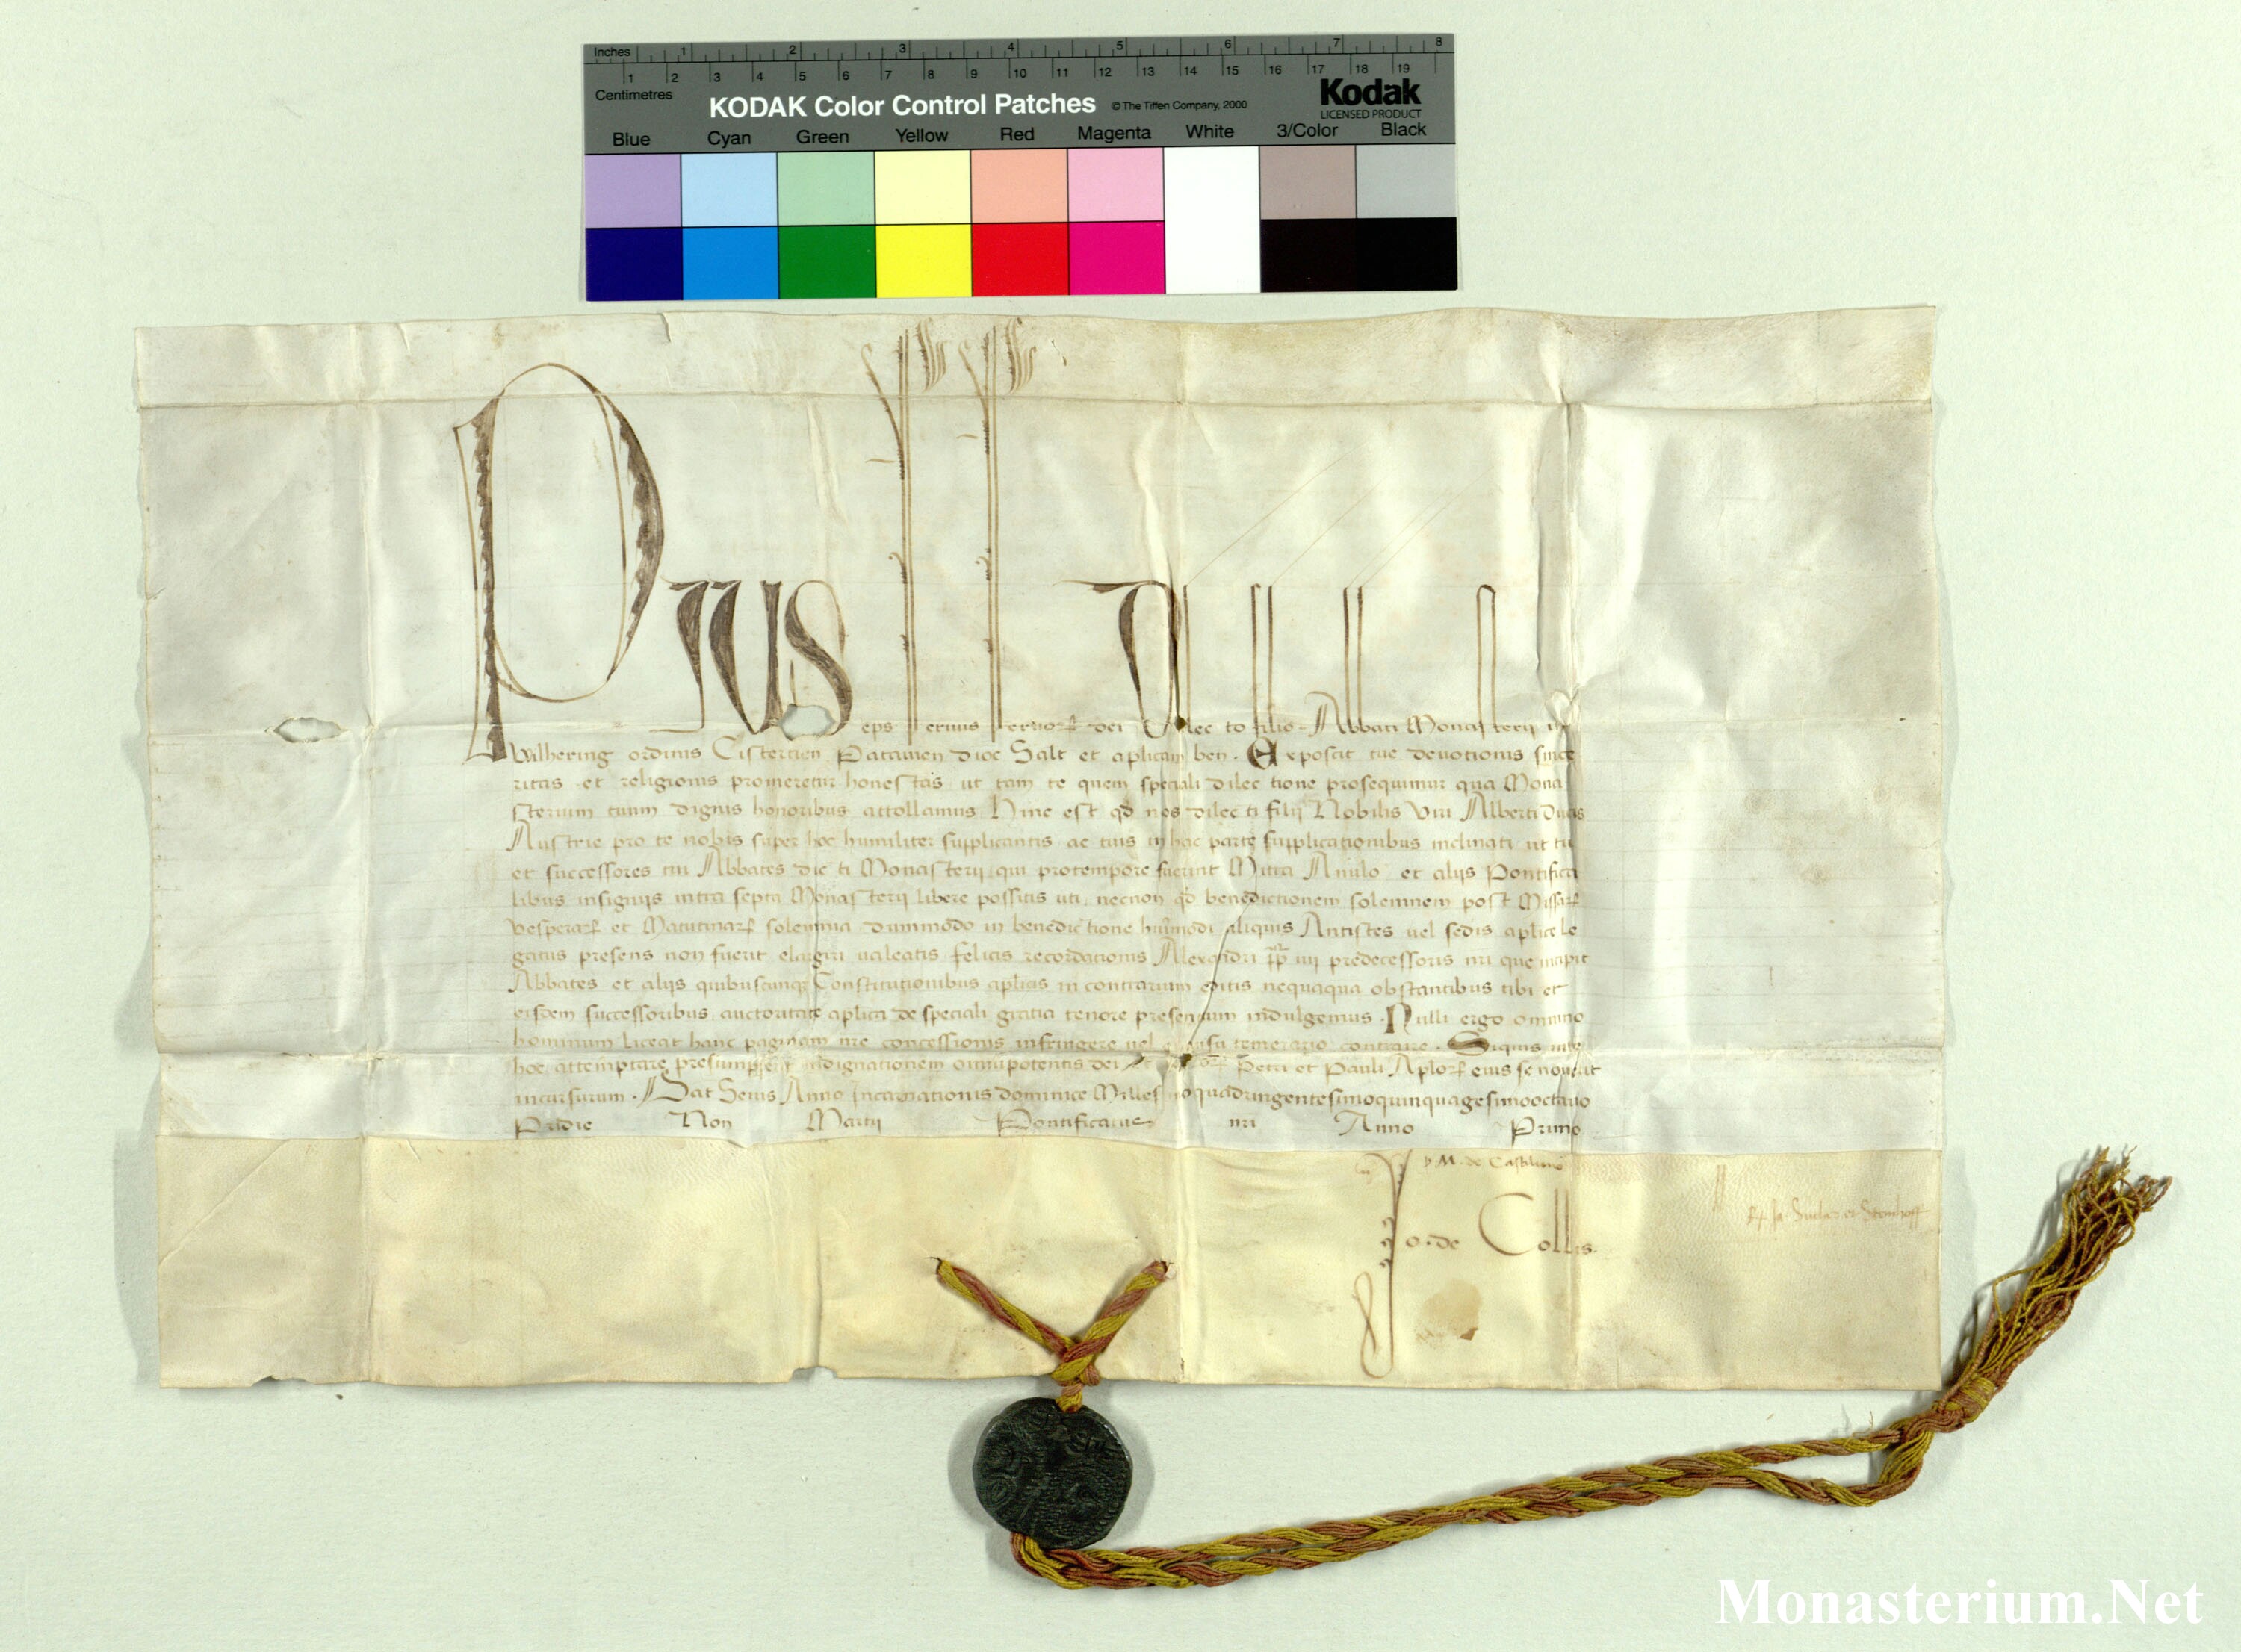 Inches 1 2 3 4 5 6 7 8
1 2 3 4 5 6 7 8 9 10 11 12 13 14 15 16 17 18 19
Centimetres
KODAK Color Control Patches © The Tiffen Company, 2000 Kodak
LICENSED PRODUCT
Blue Cyan Green Yellow Red Magenta White 3/Color Black
Pius eps seruus seruoꝝ dei Dilecto filio Abbati Monasterii in
Wilhering ordinis Cistercien Patauien dioc Salt et aplicam ben. Exposcit tue deuotionis since
ritas et religionis promeretur honestas ut tam te quem speciali dilectione prosequimur qua Mona
sterium tuum dignis honoribus attollamus Hinc est qd nos dilecti filij Nobilis Viri Alberti Ducis
Austrie pro te nobis super hoc humiliter supplicantis ac tuis in hac parte supplicationibus inclinati ut tu
et successores tui Abbates dicti Monasterij qui protempore fuerint Mitra Anulo et alijs Pontifica
libus insignijs intra septa Monasterij libere possitis uti, necnon qd benedictionem solemnem post Missaꝝ
Vesperaꝝ et Matutinaꝝ solemnia dummodo in benedictione huiusmodi aliquis Antistes uel sedis aplice le
gatus presens non fuerit elargiri ualeatis felicis recordationis Alexandri pp iiij predecessoris nri que incipit
Abbates et alijs quibuscunqꝫ Constitutionibus aplicis in contrarium editis nequaqua obstantibus tibi et
eisdem successoribus auctoritate aplica de speciali gratia tenore presentium indulgemus. Nulli ergo omnino
hominum liceat hanc paginam nre concessionis infringere uel ei ausu temerario contraire. Siquis
hoc attemptare presumpserit indignationem omnipotentis dei et Petri et Pauli Aploꝝ eius se nouerit
incursurum. Dat Senis Anno Incarnationis dominice Millesimoquadringentesimoquinquagesimooctauo
Pridie Non Martij Pontificatus nri Anno Primo
Jo. de Collis.
Monasterium.Net